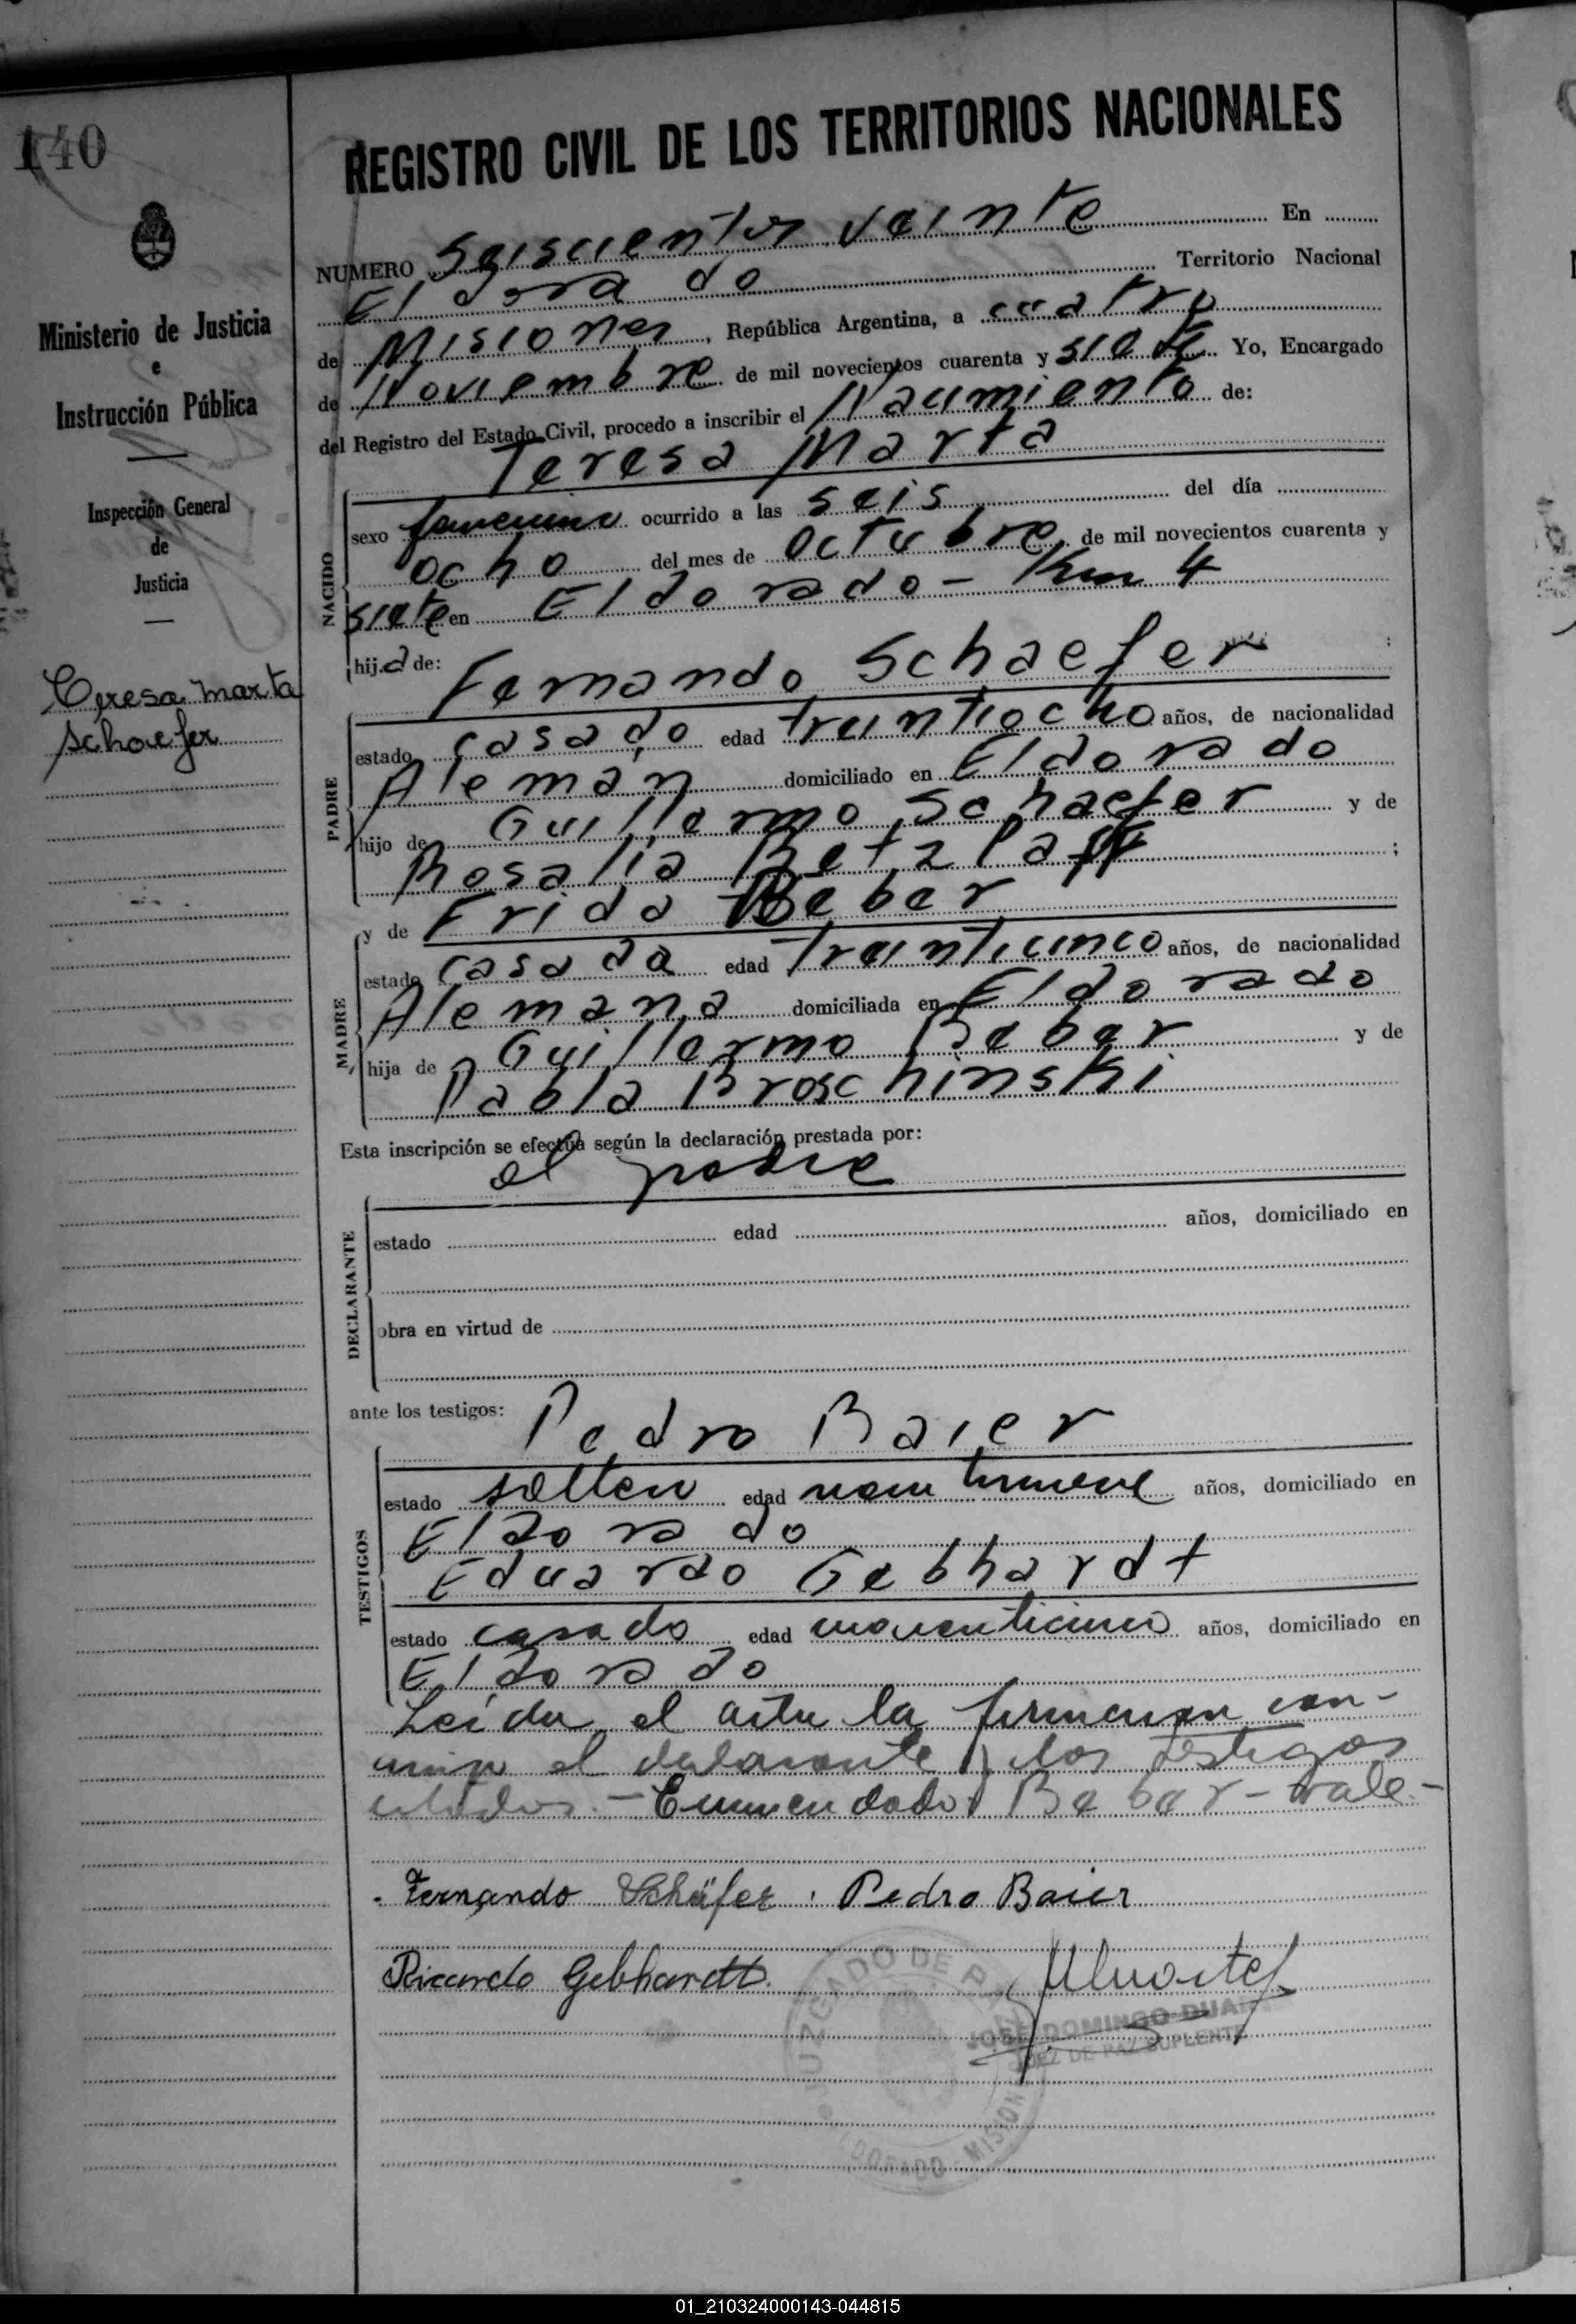 140
Ministerio de Justicia
e
Instrucción Pública
Inspección General
de
Justicia
Teresa Marta
Schaefer
REGISTRO CIVIL DE LOS TERRITORIOS NACIONALES
NUMERO Seiscientos veinte En
Eldorado Territorio Nacional
de Misiones, República Argentina, a cuatro
de Noviembre de mil novecientos cuarenta y siete Yo, Encargado
del Registro del Estado Civil, procedo a inscribir el Nacimiento de:
Teresa Marta
NACIDO
sexo femenino ocurrido a las seis del día
ocho del mes de Octubre de mil novecientos cuarenta y
siete en Eldorado - Km 4
hija de:
Fernando Schaefer
PADRE
estado casado edad treintiocho años, de nacionalidad
Alemán domiciliado en Eldorado
hijo de Guillermo Schaefer y de
Rosalia Betzlaff;
y de Frida Beber
MADRE
estado casada edad treinticinco años, de nacionalidad
Alemana domiciliada en Eldorado
hija de Guillermo Beber y de
Pabla Broschinski
Esta inscripción se efectúa según la declaración prestada por:
el padre
DECLARANTE
estado edad años, domiciliado en
obra en virtud de
ante los testigos:
Pedro Baier
TESTIGOS
estado soltero edad años, domiciliado en
Eldorado
Eduardo Gebhardt
estado casado edad años, domiciliado en
Eldorado
Leída el acta la firmaron con-
migo el declarante y los testigos
citados.- Enmendado: Beber - vale-
Fernando Schäfer Pedro Baier
Ricardo Gebhardt
JUZGADO DE PAZ
JOSE DOMINGO DUARTE
JUEZ DE PAZ SUPLENTE
ELDORADO - MISIONES
01_210324000143-044815